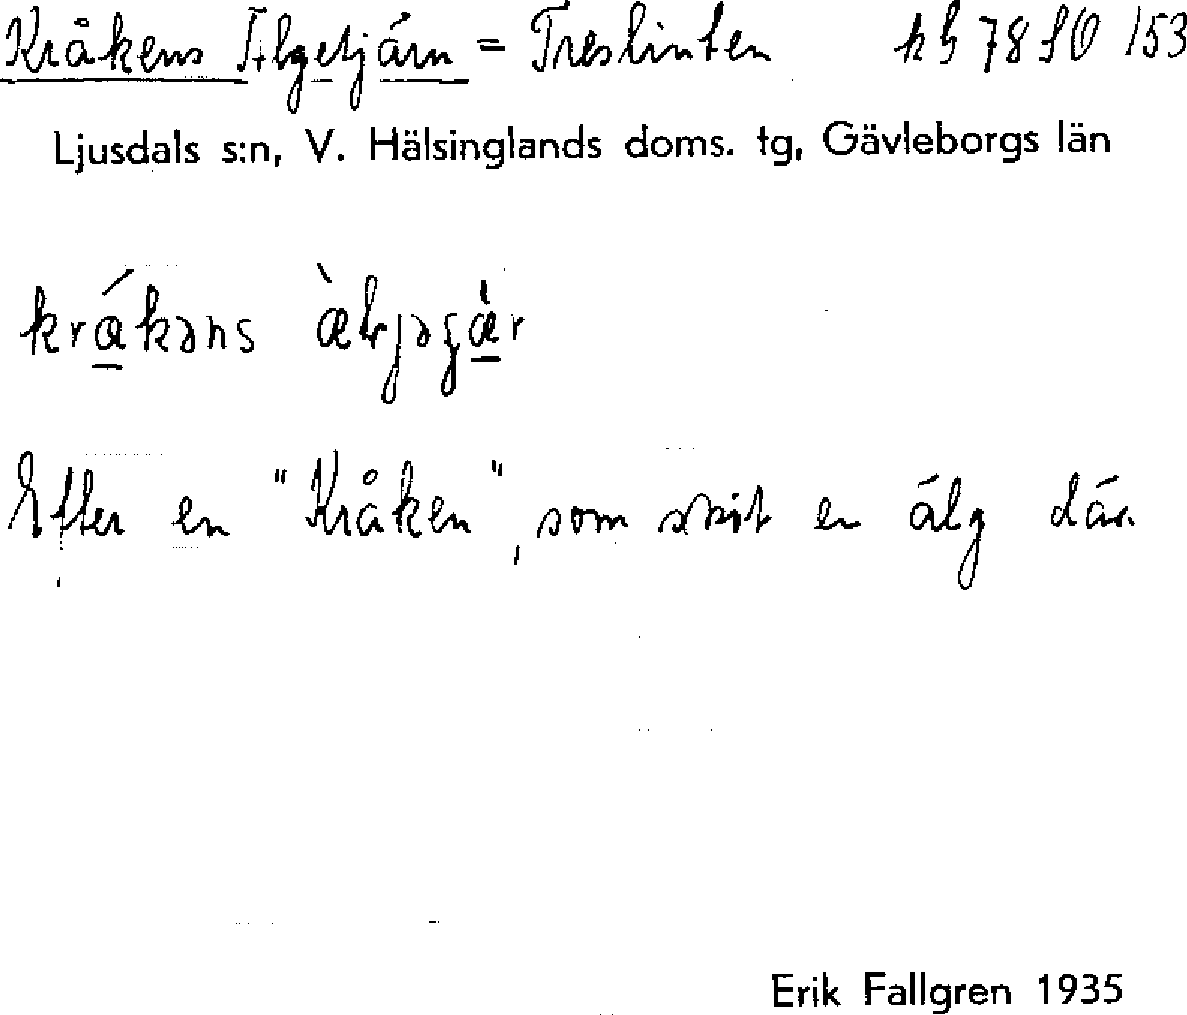 Kråkens Älgetjärn = Treslinten kg 78 SO 153
Ljusdals s:n, V. Hälsinglands doms. tg, Gävleborgs län
kråkəns
Efter en "Kråken", som sköt en älg där.
Erik Fallgren 1935